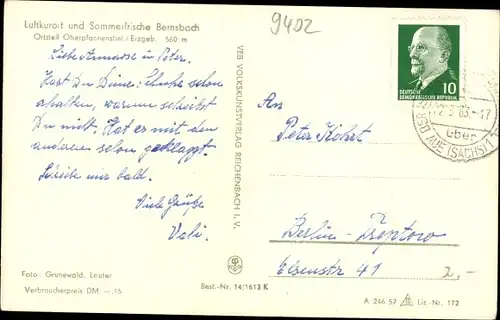 Luftkurort und Sommerfrische Bernsbach
Ortsteil Oberpfannenstiel / Erzgeb. 560 m
9402
Liebe Annarose u. Peter.
Hast Du Deine Schuhe schon
erhalten, warum schreibst
Du nicht. Hat es mit den
anderen schon geklappt.
Schreibe mir bald.
Viele Grüße
Vati.
Foto: Grunewald, Lauter
Verbraucherpreis DM —,15
VEB VOLKSKUNSTVERLAG REICHENBACH I. V.
Best.-Nr. 14/1613 K
DEUTSCHE
DEMOKRATISCHE REPUBLIK
10
-17
über
AUE (SACHS) 1
An
Peter
Berlin-Treptow
Elsenstr 41
2,-
A 246 57 Liz.-Nr. 172